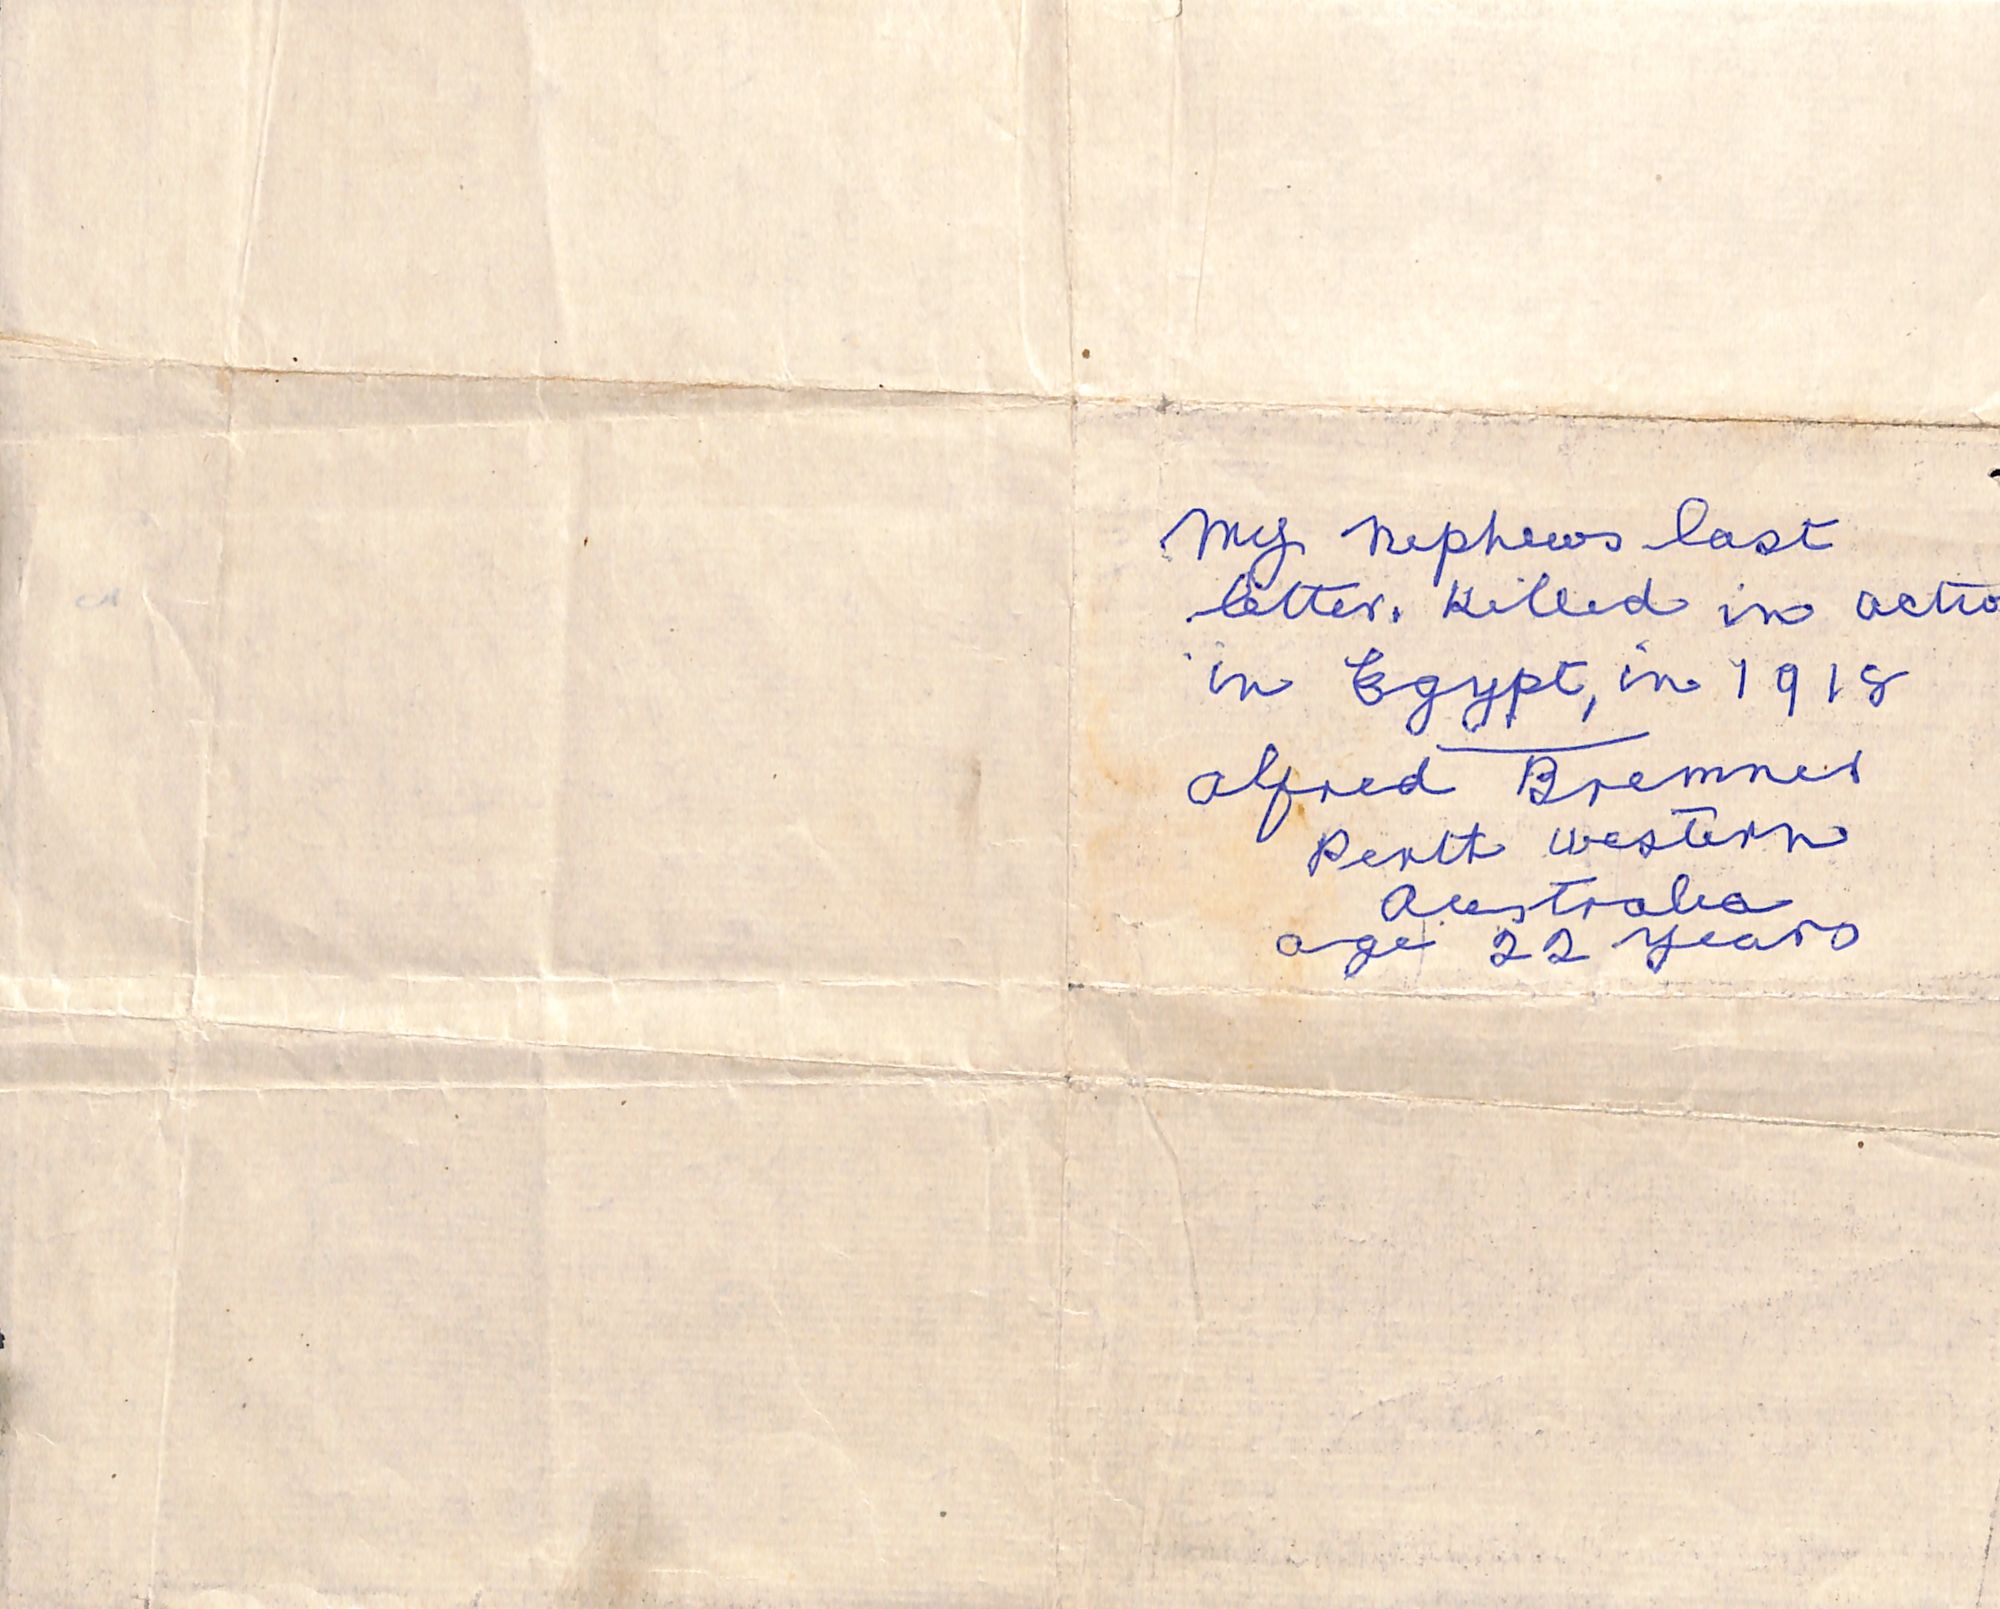 My nephews last
letter. Killed in actio
in Egypt, in 1918
Alfred Bremner
Perth Western
Australia
age 22 years